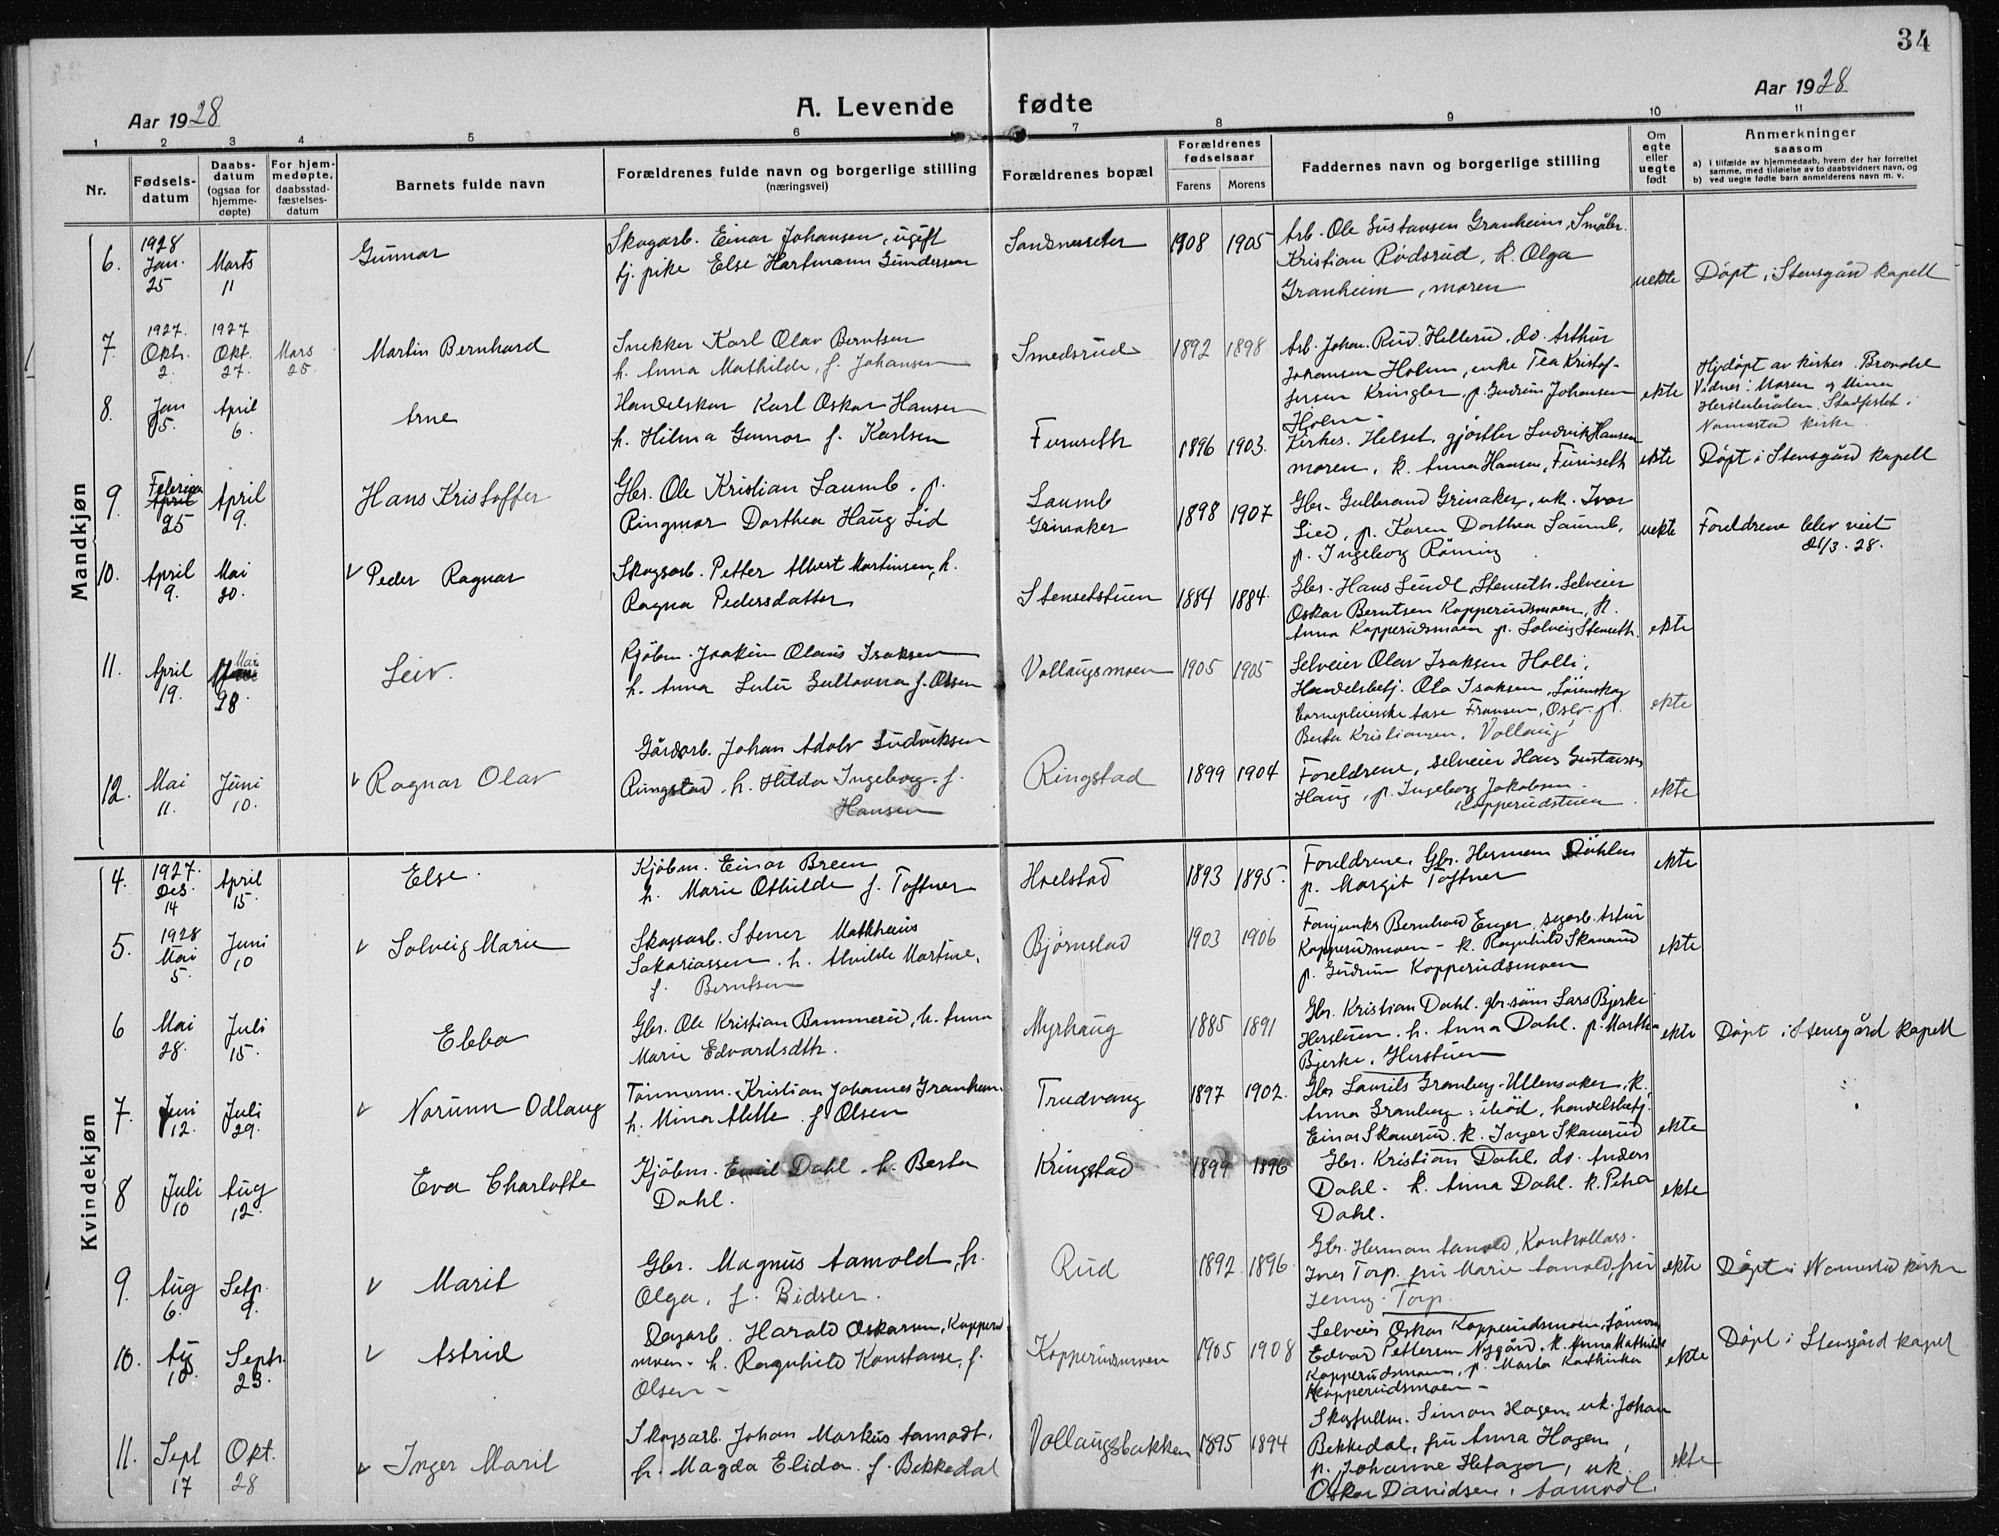 34
Aar 1928
A. Levende fødte
Aar 1928
1 2 3 4 5 6 7 8 9 10 11
Nr.
Fødsels-datum
Daabs-datum (ogsaa for hjemme-døpte)
For hjem-medøpte, daabsstad-fæstelses-datum
Barnets fulde navn
Forældrenes fulde navn og borgerlige stilling (næringsvei)
Forældrenes bopæl
Forældrenes fødselsaar
Farens Morens
Faddernes navn og borgerlige stilling
Om egte eller uegte født
Anmerkninger saasom
a) i tilfælde av hjemmedaab, hvem der har forrettet samme, med tilføielse av to daabsvidners navn, og
b) ved uegte fødte barn anmelderens navn m. v.
Mandkjøn
6. 1928 Jan. 25 Marts 11 Gunnar
Skogarb. Einar Johansen, ugift
tj. pike Else Hartmann Gundersen
Sandnesseter 1908 1905
Arb. Ole Gustansen Granheim, Småbr.
Kristian Rødsrud, k. Olga
Granheim, moren
uekte Døpt i Stensgård kapell
7. 1927. Okt. 2. 1927 Okt. 27. Mars 25. Martin Bernhard
Snekker Karl Olav Berntsen
h. Anna Mathilde, f. Johansen
Smedsrud 1892 1898
Arb. Johan Rud Hellerud, do. Arthur
Johansen Holm, enke Tea Kristof-
fersen Kringler, p. Gudrun Johansen
Holm
ekte Hjdøpt av kirkes. Brondal
Vidner: Moren og
Stadfestet i
Nannestad kirke.
8. Jan 5. April 6. Arne
Handelskar Karl Oskar Hansen
h. Hilma Gunnor f. Karlsen
Furuseth 1896 1903.
Kirkes. Helset, Ludvik Hansen
moren, k. Anna Hansen, Furuseth
ekte Døpt i Stensgård kapell
9. Februar April 25 April 9. Hans Kristoffer
Gbr. Ole Kristian Laumb. p.
Ringmor Dorthea Haug Lid
Laumb
Grinaker 1898 1907
Gbr. Gulbrand Grinaker, uk. Ivar
Lied, p. Karen Dorthea Laumb,
p. Ingeborg Røning
uekte Foreldrene blev viet
21/3.28.
10. April 9. Mai 20. v Peder Ragnar
Skogsarb. Petter Albert Martinsen, h.
Ragna Pedersdatter
Stensetstuen 1884 1884.
Gbr. Hans Lundl, Stenseth. Selveier
Oskar Berntsen Kopperudsmoen, k.
Anna Kopperudsmoen p. Solveig Stenseth.
ekte
11. April 19. Mai 28. Leiv.
Kjøbm. Joakim Olaus Isaksen
h. Anna f. Olsen
Vollaugsmoen 1905 1905
Selveier Olav Isaksen Holli,
Handelsbetj. Ola Isaksen, Lørenskog
barnepleierske Aase Fransen, Oslo. p.
Berta Kristiansen, Vollaug
ekte
12. Mai 11. Juni 10. v Ragnar Olav
Gårdsarb. Johan Adolv Ludviksen
Ringstad, h. Hilda Ingeborg f.
Hansen
Ringstad 1899 1904
Foreldrene, selveier Hans Gustavsen
Haug, p. Ingeborg Jakobsen.
Kopperudstuen
ekte
Kvindekjøn
4. 1927. Des. 14 April 15. Else.
Kjøbm. Einar Breen
h. Marie Othilde f. Toftner
Hoelstad 1893 1895.
Foreldrene, Gbr. Herman Døhlen
p. Margit Toftner
ekte
5. 1928 Mai 5. Juni 10 v Solveig Marie
Skogsarb. Stener Matheus
Sakariassen. h. Alvilde Martine,
f. Berntsen
Bjørnstad 1903 1906
Fanjunker Bernhard Enger, Artur
Kopperudsmoen - k. Ragnhild Skanerud
p. Gudrun Kopperudsmoen
ekte
6 Mai 28. Juli 15. Ebba
Gbr. Ole Kristian Bammerud, h. Anna
Marie Edvardsdtr.
Myrhaug 1885 1891
Gbr. Kristian Dahl. gbr. søn Lars Bjerke
Herstuen. h. Anna Dahl. p. Martha
Bjerke, Herstuen
ekte Døpt i Stensgård kapell
7. Juni 12. Juli 29. v Norunn Odlaug
Tømmerm. Kristian Johannes Granheim
h. Mina Alette f. Olsen
Trudvang 1897 1902.
Gbr. Laurits Granberg, Ullensaker, k.
Anna Granberg, ibid, handelsbetj.
Einar Skanerud. k. Inger Skanerud
ekte
8 Juli 10 Aug 12. Eva Charlotte
Kjøbm. Emil Dahl. h. Berta
Dahl.
Kringstad 1899 1896
Gbr. Kristian Dahl, do. Anders
Dahl. k. Anna Dahl. k. Petra
Dahl.
ekte
9. Aug 6. Sept. 9. v Marit
Gbr. Magnus Aamold, h.
Olga, f. Bidsler.
Rud 1892 1896
Gbr. Herman Aamold, Kontrollass.
Iver Torp. fru Marie Aamold, fru
Jenny Torp.
ekte Døpt i Nannestad kirke
10. Aug 10. Septr. 23. v Astrid
Dagarb. Harald Oskarsen, Kopperud
moen - h. Ragnhild Konstanse, f.
Olsen -
Kopperudsmoen 1905 1908
Selveier Oskar Kopperudsmoen,
Edvar Pettersen Nygård. k. Anna Mathilde
Kopperudsmoen, p. Marta Kathinka
Kopperudsmoen -
ekte Døpt i Stensgård kapel
11. Sept 17 Okt. 28 v Inger Marit
Skogsarb. Johan Markus Aamodt.
h. Magda Elida f. Bekkedal
Vollaugsbakken 1895 1894
Skogfullm. Simon Hagen, uk. Johan
Bekkedal, fru Anna Hagen,
p. Johanne Hetager, uk.
Oskar Davidsen, Aamodt.
ekte